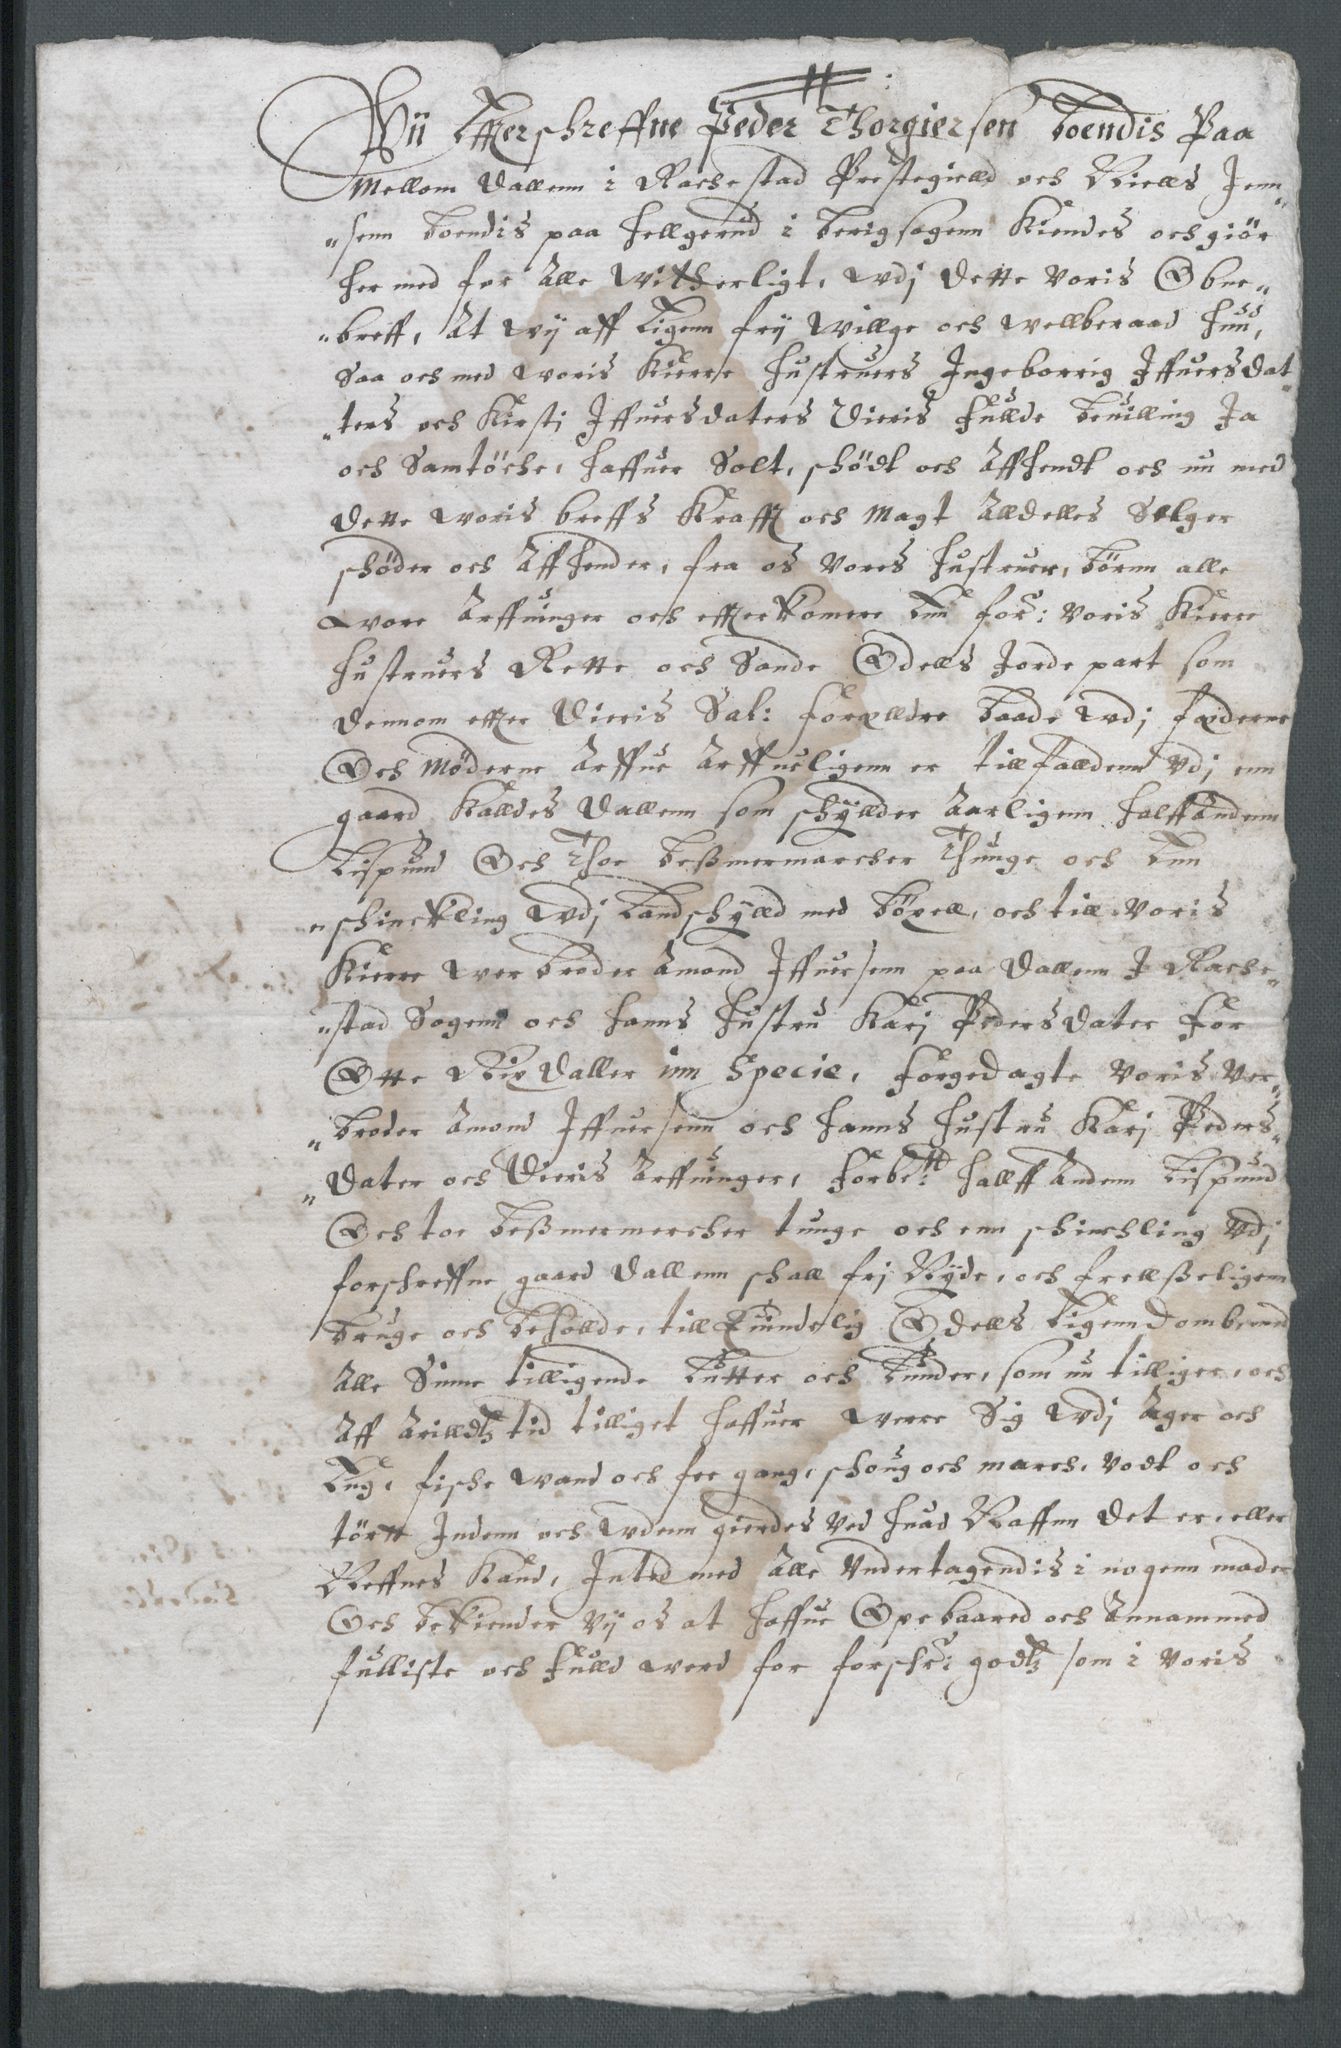 Wii Efftterschreffne Peder Thorgiersen boendis Paa
Mellom dallenn i Rachestad Prestegielld och Niells Jenn„
„senn boendis paa hellgerud i berigsogenn Kiendes och giör
her med for Alle witherligt, wdj dette voris Obne„
„breff, At wij aff Eigenn frij willge och wellberaad huu,
Saa och med woris Kierre hustruers Ingeborrig Iffuersdat„
„ters och Kirstj Iffuersdaters dieris fullde beuilling Ja
och Samtöche, haffuer Solt, schödt och Affhendt och nu med
dette woris breffs Krafft och Magt Alldelles Selger
schöder och Affhender, fra os vores hustruer, börnn alle
wore Arffuinger och effterkomere Enn for: voris Kierre
hustruers Rette och Sande Odells Jorde part som
dennom effter dieris Sal: forælldre baade wdj fæderne
Och Möderne Arffue Arffueligenn er tillfalldenn vdj enn
gaard Kalldes dallenn som schyllder Aarligenn halffAndenn
Lispund Och Thoe beßmermarcher Thunge och Enn
„schinckling wdj Landschylld med böxell, och till voris
Kierre wer broder Amond Iffuersenn paa dallenn I Rache„
„stad Sogenn och hanns hustru Karj Pedersdater for
Otte Rix daller inn Specie, forgedagte voris ver„
„broder Amond Iffuersenn och hanns hustru Karj Peders„
„dater och dieris Arffuinger, forbe:td hallff Andenn Lispund
Och toe beßmermercher tunge och enn schinchling vdj
forschreffne gaard dallenn schall frj Nyde, och frellßeligenn
bruge och beholde, till Euindelig Odells Eigenndom bered
Alle Sinne tilligende Lutter och Lunder, som nu tilliger, och
Aff Arilldtz tid tilliget haffuer werre Sig wdj Ager och
Eng, fische wand och fee gang, schoug och march, vodt och
törtt Indenn och wdenn gierdes ved huad Naffnn det er, eller
Neffnes Kand, Inted med Alle vndertagendis i nogenn made
Och bekiender vij os at haffue Opebaared och Annammed
fulliste och fulld werd for forschr: godtz som i voris